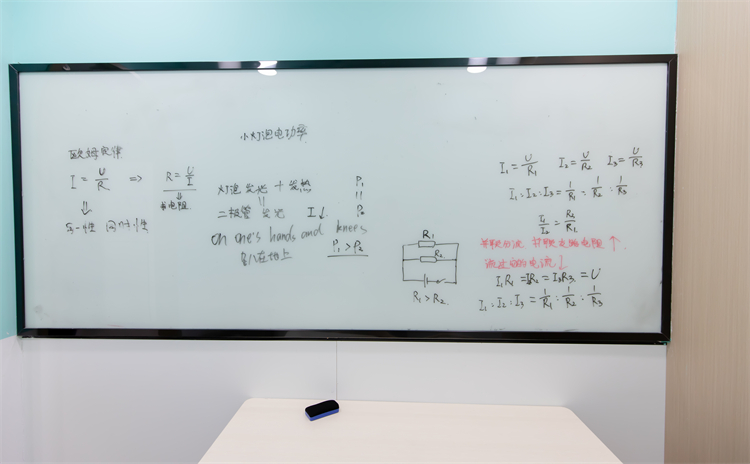 小灯泡电功率
欧姆定律
I = U/R => R = U/I
求电阻
同一性 同时性
灯泡 发光 + 发热 P₁
=
二极管 发光 I↓ P₂
on one's hands and knees
P₁ > P₂
趴在地上
R₁
R₂
R₁ > R₂
I₁ = U/R₁ I₂ = U/R₂ I₃ = U/R₃
I₁ : I₂ : I₃ = 1/R₁ : 1/R₂ : 1/R₃
I₁/I₂ = R₂/R₁
并联分流 并联电路电阻 ↑
流过它的电流 ↓
I₁R₁ = I₂R₂ = I₃R₃ = U
I₁ : I₂ : I₃ = 1/R₁ : 1/R₂ : 1/R₃